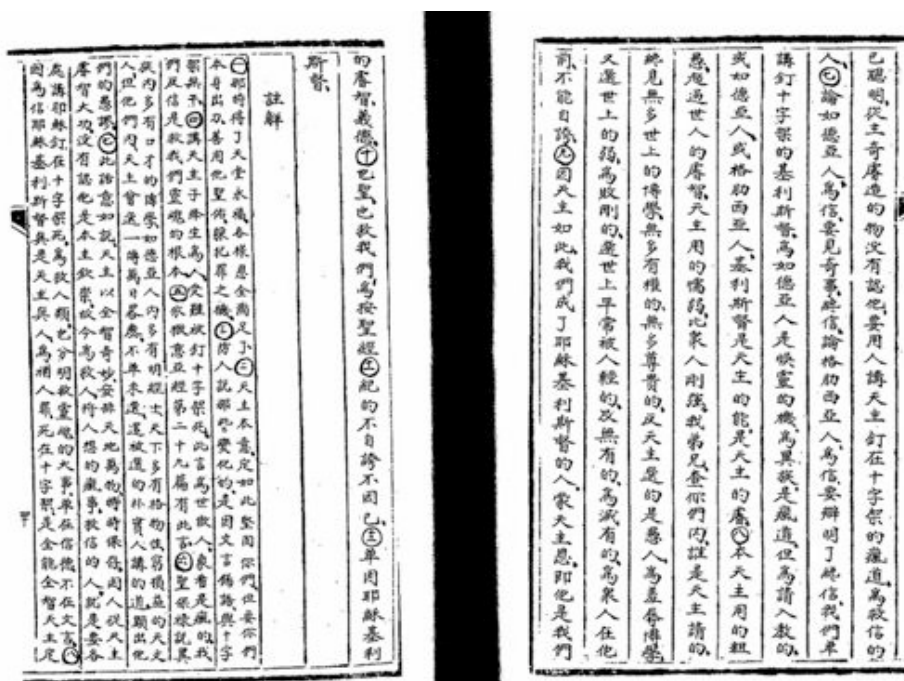 已聰明,從主奇睿造的物沒有認他,要用人講天主釘在十字架的瘋道,爲救信的
人,㊆論如德亞人爲信,要見奇事,纔信,論格肋西亞人,爲信,要辯明了纔信,我們單
講釘十字架的基利斯督,爲如德亞人是的機,爲異族是瘋道,但爲請入教的,
或如德亞人,或格肋西亞人,基利斯督是天主的能,是天主的睿,㊇本天主用的粗
愚,超過世人的睿智,天主用的懦弱,比衆人剛强,我弟兄查你們內,誰是天主請的,
終見無多世上的博學,無多有權的,無多尊貴的,反天主選的是愚人,爲羞辱博學,
又選世上的弱,爲敗剛的,選世上平常被人輕的,及無有的,爲滅有的,爲衆人在他
前不能自誇,㊈因天主如此,我們成了耶穌基利斯督的人,蒙天主恩,即他是我們
的睿智,義德,㊉也聖,也救我們,爲按聖經紀的不自誇不因己,單因耶穌基利
斯督,
註解
㊀那時得了天堂永福,各樣恩全備足了,㊁天主本意,定如此堅固你們,但要你們
本身出力善用他聖佑,躲犯罪之機,㊂傍人說那些變化的,是因文言錫謊,與十字
架無干,㊃講天主子降生爲人,受難被釘十字架死,此言爲世俗人,象看是瘋的,我
們反信是救我們靈魂的根本,㊄衣撒意亞經第二十九篇有此言,㊅聖保祿說,異
族內多有口才的博學,如德亞人內多有明經士,天下多有格物性窮損益的天文
人,但他們內,天主曾選一傳萬日否無,不單未選,還被選的朴實人講的道,顯出他
們的愚謬,㊆此話意如說,天主以全智奇妙,安排天地萬物,時時保存,因人從天主
睿智大功,沒有認他是本主欽崇,故今爲救人,將人想的瘋事,救信的人,就是要各
處講耶穌釘在十字架死,爲救人類,也分明救靈魂的大事,單在信德,不在文言,㊇
因爲信耶穌基利斯督眞是天主眞人,爲補人罪,死在十字架,是全能全智天主定